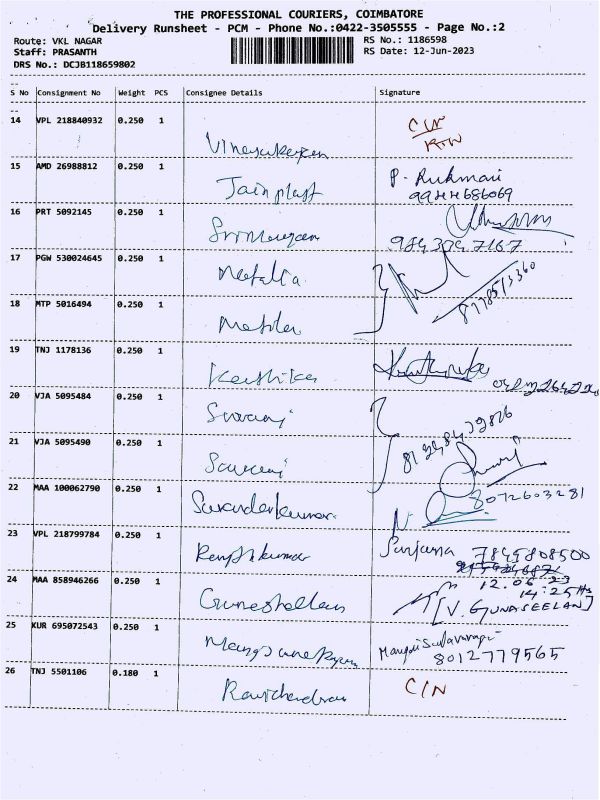 THE PROFESSIONAL COURIERS, COIMBATORE
Delivery Runsheet - PCM - Phone No.:0422-3505555 - Page No.:2
Route: VKL NAGAR RS No.: 1186598
Staff: PRASANTH RS Date: 12-Jun-2023
DRS No.: DCJB118659802
S No Consignment No Weight PCS Consignee Details Signature
14 VPL 218840932 0.250 1 C/N
Vinayakeyan
15 AMD 26988812 0.250 1 P. Rukmani
Jainplast 9944686069
16 PRT 5092145 0.250 1
Srimurugan 9843747167
17 PGW 530024645 0.250 1
Metalla 8778513360
18 MTP 5016494 0.250 1
19 TNJ 1178136 0.250 1
Keethika
20 VJA 5095484 0.250 1
21 VJA 5095490 0.250 1
22 MAA 100062790 0.250 1 8072603281
Surenderkumar
23 VPL 218799784 0.250 1 Sanjana 7845808500
Renjithkumar
24 MAA 858946266 0.250 1 12.06.23
14:25 Hs
Guneshellan [V. GUNASEELAN]
25 KUR 695072543 0.250 1
8012779565
26 TNJ 5501106 0.180 1 C/N
Ravichandran